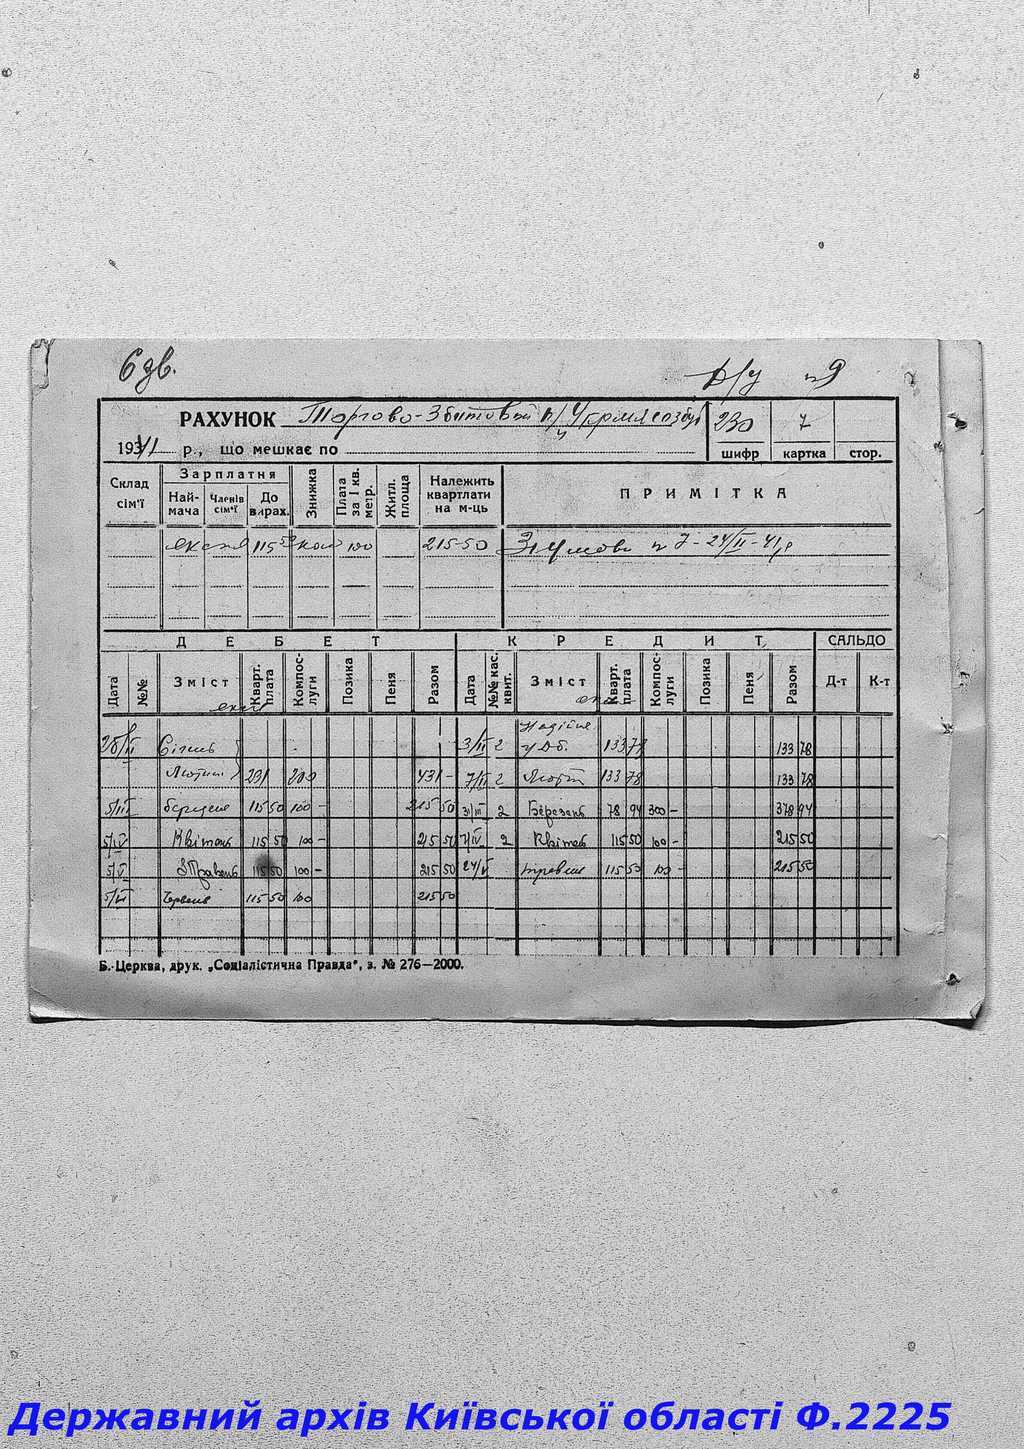 6 дв.
№ 9
РАХУНОК Торгово-Збитовой
230 7
1941 р., що мешкає по
шифр картка стор.
Склад сім'ї Зарплатня Най-мача Членів сім'ї До вирах. Знижка Плата за 1 кв. метр. Житл. площа Належить квартплати на м-ць ПРИМІТКА
115 50 100 215-50 7-24/II-41 р
ДЕБЕТ КРЕДИТ САЛЬДО
Дата №№ Зміст Кварт. плата Компос-луги Позика Пеня Разом Дата №№ кас. квит. Зміст Кварт. плата Компос-луги Позика Пеня Разом Д-т К-т
Січень 3/III 2 133 78 133 78
Лютий 231 200 431 - 7/III 2 133 78 133 78
5/III 115 50 100 - 215 50 31/III 2 Березень 78 94 300 - 378 94
5/IV Квітень 115 50 100 - 215 50 7/IV 2 Квітень 115 50 100 - 215 50
5/V Травень 115 50 100 - 215 50 24/V травень 115 50 100 - 215 50
5/VI Червень 115 50 100 215 50
Б.-Церква, друк. „Соціалістична Правда“, з. № 276—2000.
Державний архів Київської області Ф.2225